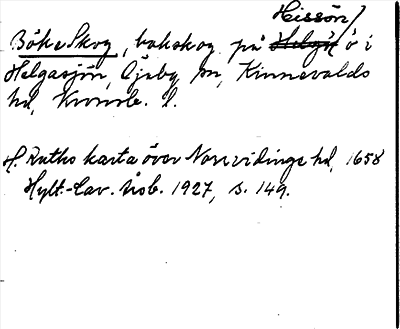 Hissön/
Böke Skog, bokskog på Helgö ö i
Helgasjön, Öjaby sn, Kinnevalds
hd, Kronob. l.
H. Ruths karta över Norrvidinge hd, 1658
Hylt.-Cav. årsb. 1927, s. 149.